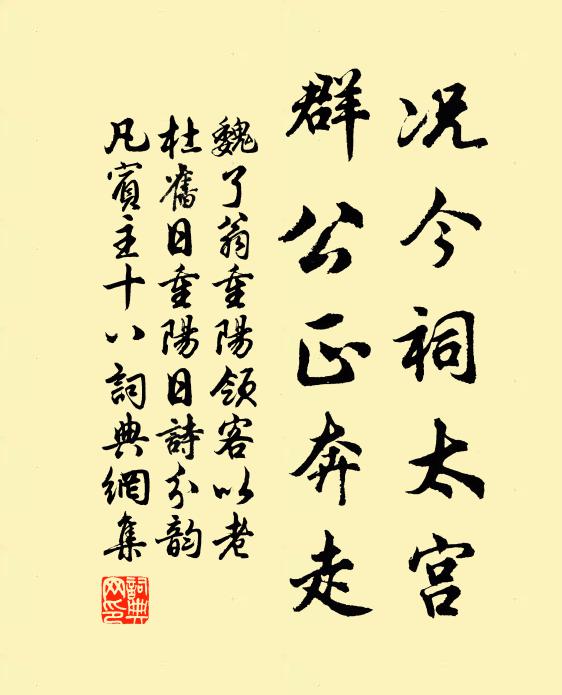 况今祠太宫
群公正奔走
魏了翁重陽領客以老
杜舊日重陽日詩分韵
凡賓主十八詞典網集
詞典網印